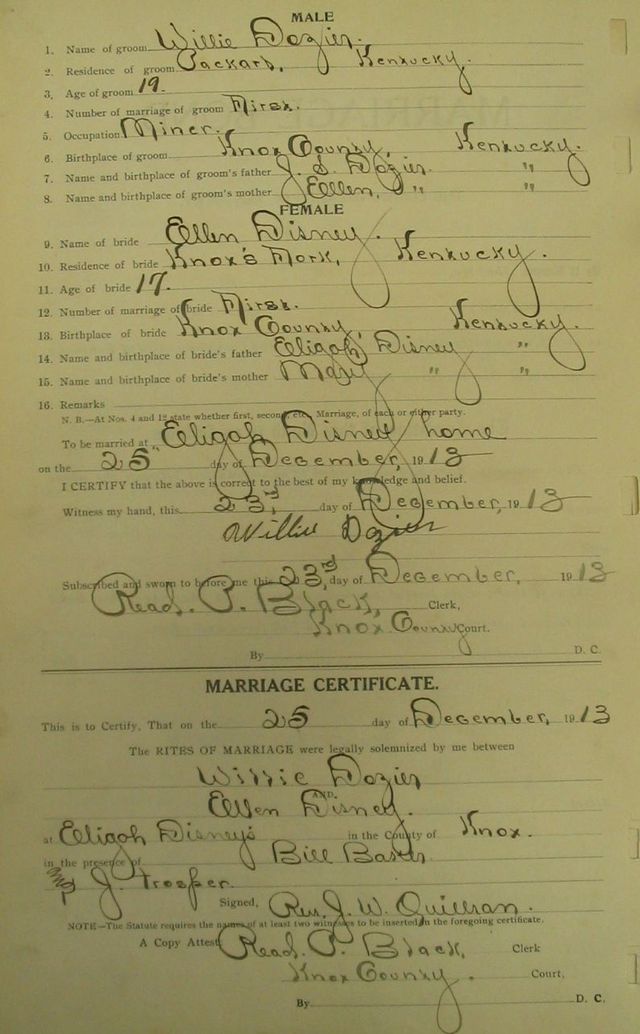 MALE
1. Name of groom Willie Dozier.
2. Residence of groom Packard, Kentucky.
3. Age of groom 19.
4. Number of marriage of groom First.
5. Occupation Miner.
6. Birthplace of groom Knox County, Kentucky.
7. Name and birthplace of groom's father J. S. Dozier. "
8. Name and birthplace of groom's mother Ellen, " "
FEMALE
9. Name of bride Ellen Disney.
10. Residence of bride Knox's Fork, Kentucky.
11. Age of bride 17.
12. Number of marriage of bride First.
13. Birthplace of bride Knox County, Kentucky.
14. Name and birthplace of bride's father Eligah Disney "
15. Name and birthplace of bride's mother Mary " "
16. Remarks
N. B.—At Nos. 4 and 12 state whether first, second, etc., Marriage, of each or either party.
To be married at Eligah Disney home
on the 25 day of December, 1913
I CERTIFY that the above is correct to the best of my knowledge and belief.
Witness my hand, this 23rd, day of December, 1913
Willie Dozier
Subscribed and sworn to before me this 23rd, day of December, 1913
Read. P. Black, Clerk,
Knox County Court.
By D. C.
MARRIAGE CERTIFICATE.
This is to Certify, That on the 25 day of December, 1913
The RITES OF MARRIAGE were legally solemnized by me between
Willie Dozier
AND
Ellen Disney.
at Eligah Disney's in the County of Knox.
in the presence of Bill
J. Trosper.
Signed, Rev. J. W.
NOTE—The Statute requires the names of at least two witnesses to be inserted in the foregoing certificate.
A Copy Attest Read. P. Black, Clerk
Knox County Court,
By D. C.